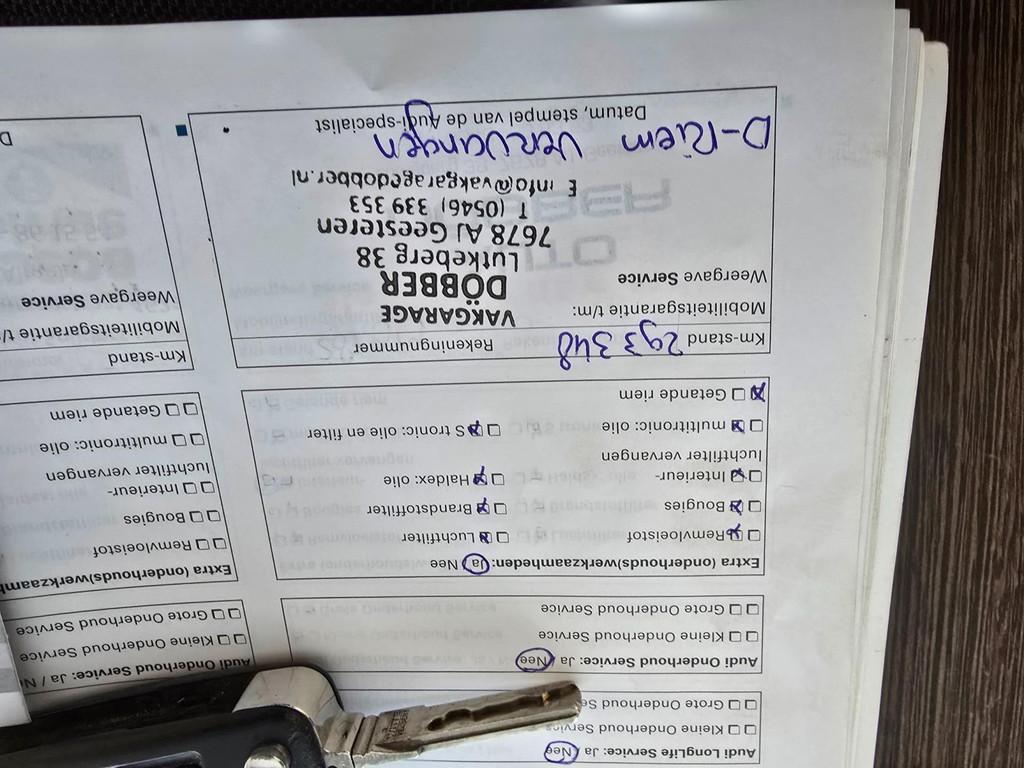 Audi LongLife Service: Ja / Nee
Kleine Onderhoud Service
Grote Onderhoud Se
Audi Onderhoud Service: Ja / Nee
Kleine Onderhoud Service
Grote Onderhoud Service
Extra (onderhouds)werkzaamheden: Ja / Nee
Remvloeistof
Luchtfilter
Bougies
Brandstoffilter
Interieur-
luchtfilter vervangen
Haldex: olie
multitronic: olie
S tronic: olie en filter
Getande riem
Km-stand 293 348
Rekeningnummer
Mobiliteitsgarantie t/m:
Weergave Service
VAKGARAGE
DÖBBER
Lutkeberg 38
7678 AJ Geesteren
T (0546) 339 353
E info@vakgaragedobber.nl
D-Riem vervangen
Datum, stempel van de Audi-specialist
Audi Onderhoud Service: Ja / N
Kleine Onderhoud Service
Grote Onderhoud Service
Extra (onderhouds)werkzaamh
Remvloeistof
Bougies
Interieur-
luchtfilter vervangen
multitronic: olie
Getande riem
Km-stand
Mobiliteitsgarantie t/m
Weergave Service
D